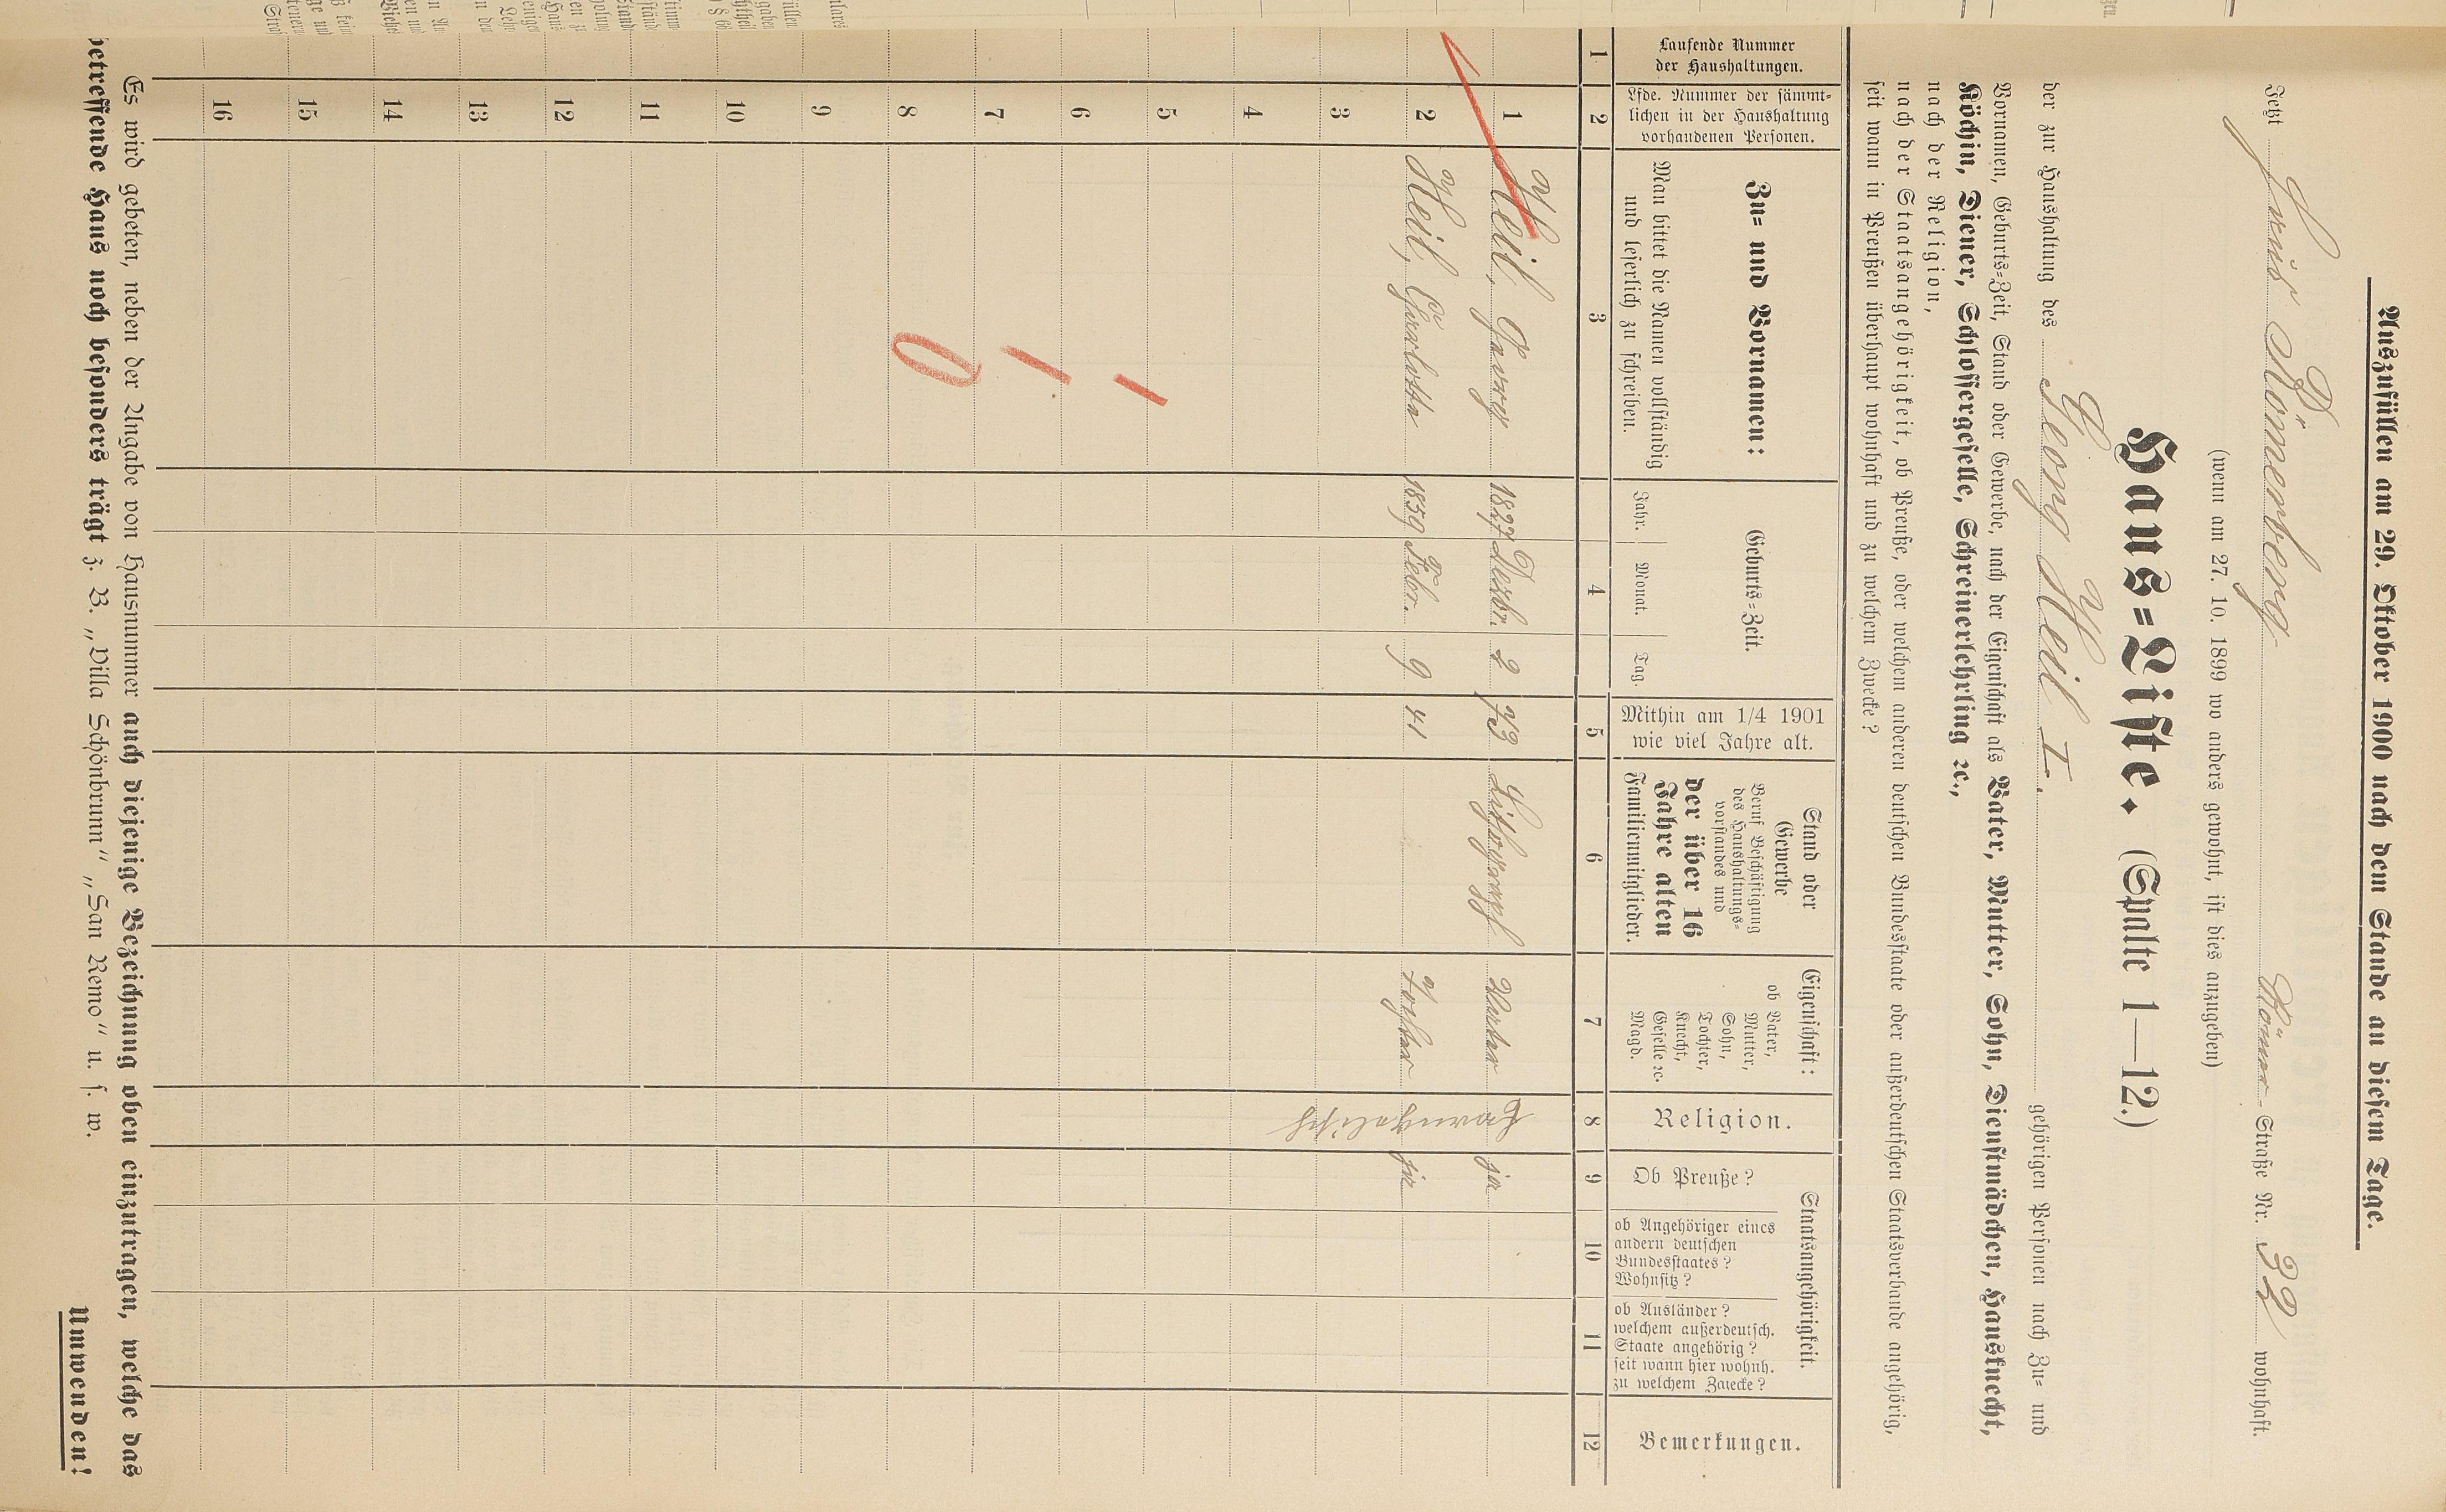 Auszufüllen am 29. Oktober 1900 nach dem Stande an diesem Tage.
Jetzt Haus Römerberg Römer-Straße Nr. 32 wohnhaft.
(wenn am 27. 10. 1899 wo anders gewohnt, ist dies anzugeben)
Haus-Liste. (Spalte 1—12.)
der zur Haushaltung des Georg Heil I. gehörigen Personen nach Zu- und
Vornamen, Geburts-Zeit, Stand oder Gewerbe, nach der Eigenschaft als Vater, Mutter, Sohn, Dienstmädchen, Hausknecht,
Köchin, Diener, Schlossergeselle, Schreinerlehrling ꝛc.,
nach der Religion,
nach der Staatsangehörigkeit, ob Preuße, oder welchem anderen deutschen Bundesstaate oder außerdeutschen Staatsverbande angehörig,
seit wann in Preußen überhaupt wohnhaft und zu welchem Zwecke?
Laufende Nummer
der Haushaltungen.
Lfde. Nummer der sämmt-
lichen in der Haushaltung
vorhandenen Personen.
Zu- und Vornamen:
Man bittet die Namen vollständig
und leserlich zu schreiben.
Geburts-Zeit.
Jahr. Monat. Tag.
Mithin am 1/4 1901
wie viel Jahre alt.
Stand oder
Gewerbe
Beruf Beschäftigung
des Haushaltungs-
vorstandes und
der über 16
Jahre alten
Familienmitglieder.
Eigenschaft:
ob Vater,
Mutter,
Sohn,
Tochter,
Knecht,
Geselle ꝛc.
Magd.
Religion.
Staatsangehörigkeit.
Ob Preuße?
ob Angehöriger eines
andern deutschen
Bundesstaates?
Wohnsitz?
ob Ausländer?
welchem außerdeutsch.
Staate angehörig?
seit wann hier wohnh.
zu welchem Zwecke?
Bemerkungen.
1 2 3 4 5 6 7 8 9 10 11 12
1 Heil, Georg 1827 Dezbr. 2 73 Lithograph Vater Evangelisch ja
2 Heil, Charlotte 1859 Febr. 9 41 Tochter ja
3
4
5
6
7
8
9
10
11
12
13
14
15
16
Es wird gebeten, neben der Angabe von Hausnummer auch diejenige Bezeichnung oben einzutragen, welche das
betreffende Haus noch besonders trägt z. B. „Villa Schönbrunn“ „San Remo“ u. s. w.
Umwenden!